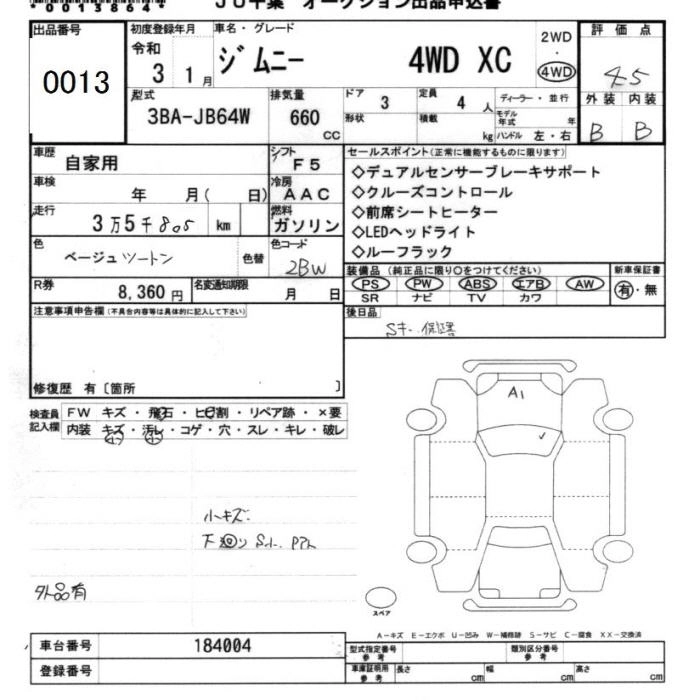 *0013864*
JU千葉 オークション出品申込書
出品番号 0013
初度登録年月 令和 3 1月
車名・グレード ジムニー 4WD XC
2WD・4WD
評価点 4.5
型式 3BA-JB64W
排気量 660 CC
ドア 3
定員 4 人
形状
積載 kg
ディーラー・並行
モデル年式 年
ハンドル 左・右
外装 内装
B B
車歴 自家用
シフト F5
車検 年 月( 日)
冷房 AAC
走行 3万5千805 km
燃料 ガソリン
色 ベージュツートン
色替
色コード 2BW
R券 8,360円
名変通知期限 月 日
セールスポイント(正常に機能するものに限ります)
◇デュアルセンサーブレーキサポート
◇クルーズコントロール
◇前席シートヒーター
◇LEDヘッドライト
◇ルーフラック
装備品(純正品に限り○をつけてください)
PS PW ABS エアB AW
SR ナビ TV カワ
新車保証書
有・無
注意事項申告欄(不具合内容等は具体的に記入して下さい)
後日品
Sキー.保証書
修復歴 有〔箇所 〕
検査員記入欄
FW キズ・飛石・ヒビ割・リペア跡・×要
内装 キズ・汚レ・コゲ・穴・スレ・キレ・破レ
小キズ
下廻り
外品有
A1
スペア
A-キズ E-エクボ U-凹み W-補修跡 S-サビ C-腐食 XX-交換済
車台番号 184004
登録番号
型式指定番号 参考
類別区分番号 参考
車庫証明用 参考
長さ cm 幅 cm 高さ cm